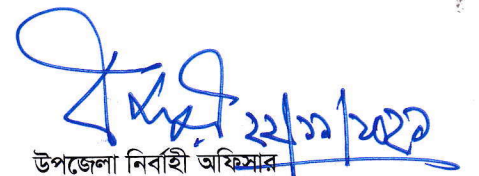 ২২/১১/২০২১
উপজেলা নির্বাহী অফিসার